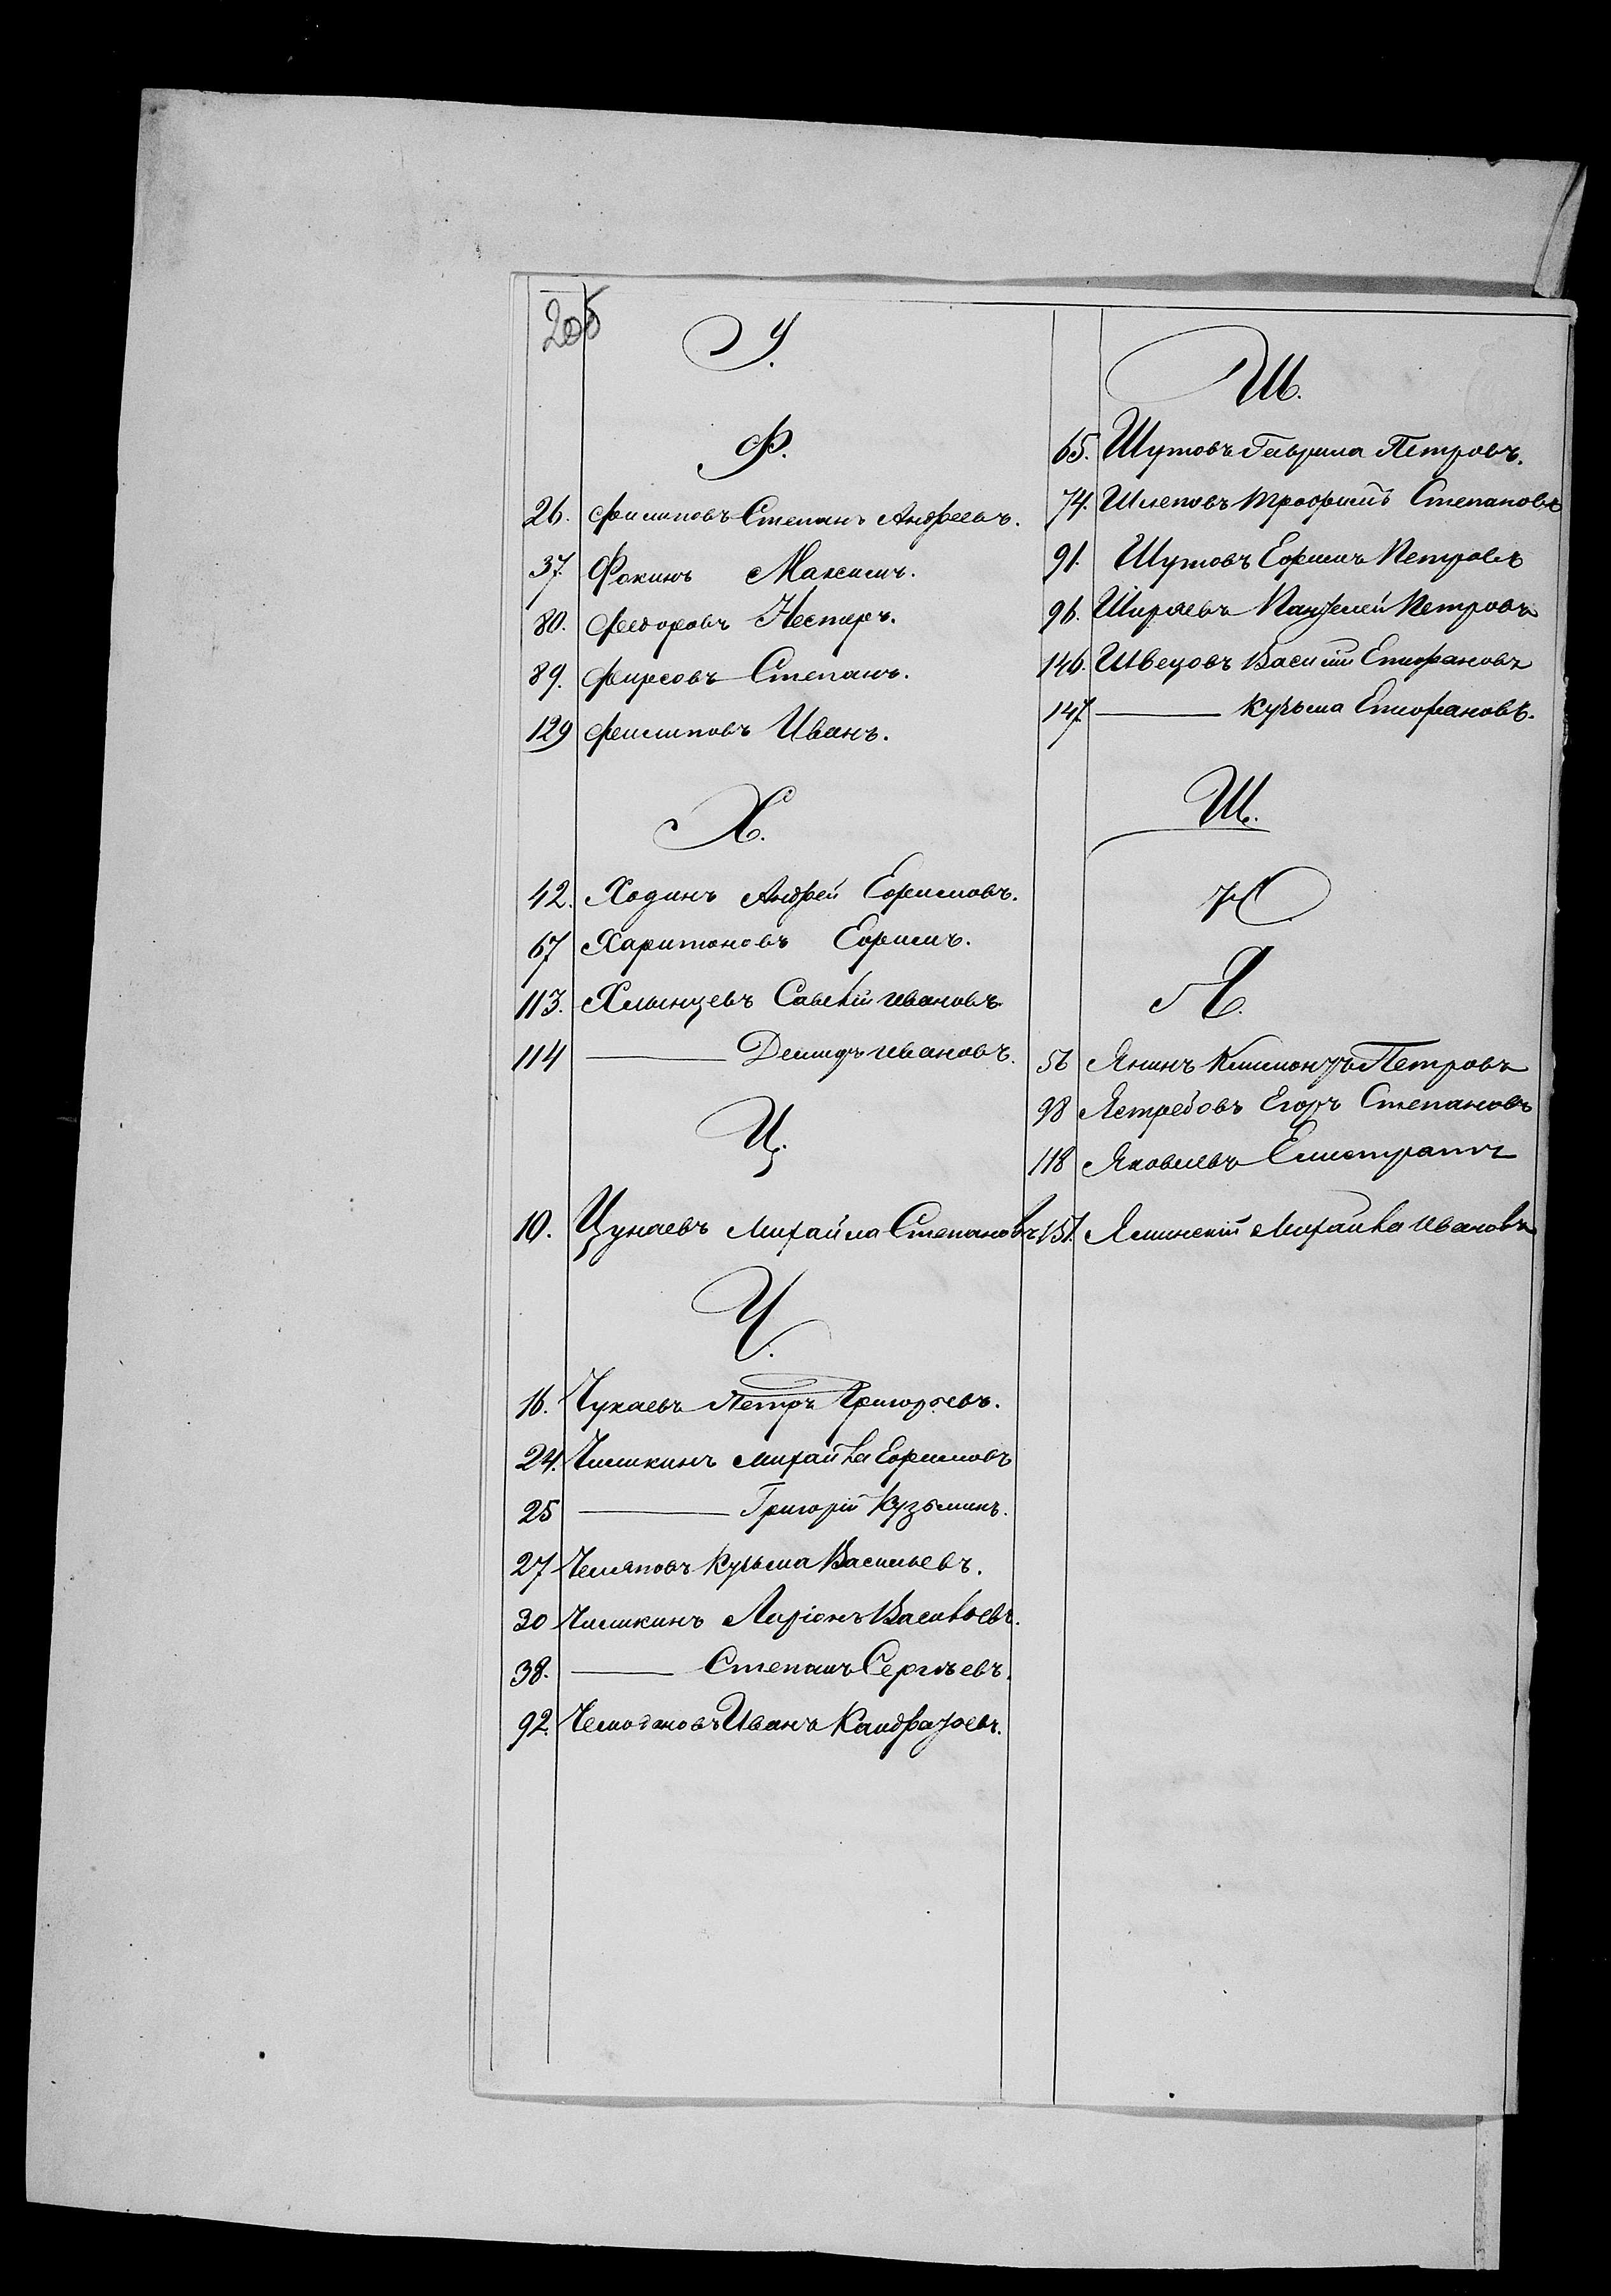 205
У.
Ф.
26. Филиповъ Степанъ Андреевъ.
37. Фокинъ Максимъ.
80. Федоровъ Нестеръ.
89. Фирсовъ Степанъ.
129 Филиповъ Иванъ.
Х.
42. Ходинъ Андрей Ефимовъ.
67 Харитоновъ Ефимъ.
113. Хлынцевъ Савелій Ивановъ.
114 ——— Демидъ Ивановъ.
Ц.
10. Цунаевъ Михайла Степановъ
Ч.
16. Чукаевъ Петръ Григорьевъ.
24. Чишкинъ Михайла Ефимовъ
25 ——— Григорій Кузьминъ.
27 Кузьма Васильевъ.
30 Чишкинъ Ларіонъ Васильевъ.
38. ——— Степанъ Сергѣевъ.
92. Чемодановъ Иванъ Кандратьевъ.
Ш.
65. Шутовъ Гаврила Петровъ.
74. Шлеповъ Трофимъ Степановъ
91. Шутовъ Ефимъ Петровъ
96. Ширяевъ Пантелей Петровъ
146. Швецовъ Василій Епифановъ
147. ——— Кузьма Епифановъ.
Щ.
Ю
Я.
56 Янинъ Климонтъ Петровъ
98 Ястребовъ Егоръ Степановъ
118 Яковлевъ Елистратъ
151. Ялинскій Михайла Ивановъ